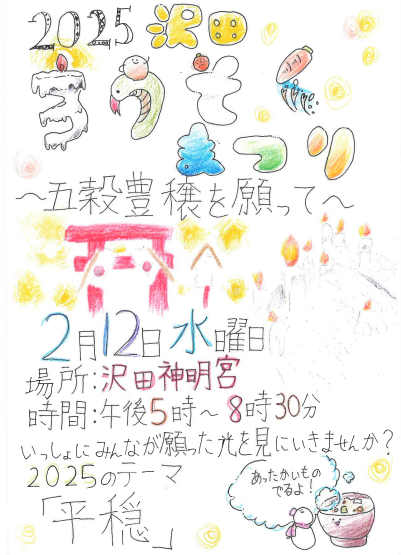 2025 沢田
ろうそく
まつり
〜五穀豊穣を願って〜
2月12日水曜日
場所:沢田神明宮
時間:午後5時〜8時30分
いっしょにみんなが願った光を見にいきませんか?
2025のテーマ
「平穏」
あったかいもの
でるよ!